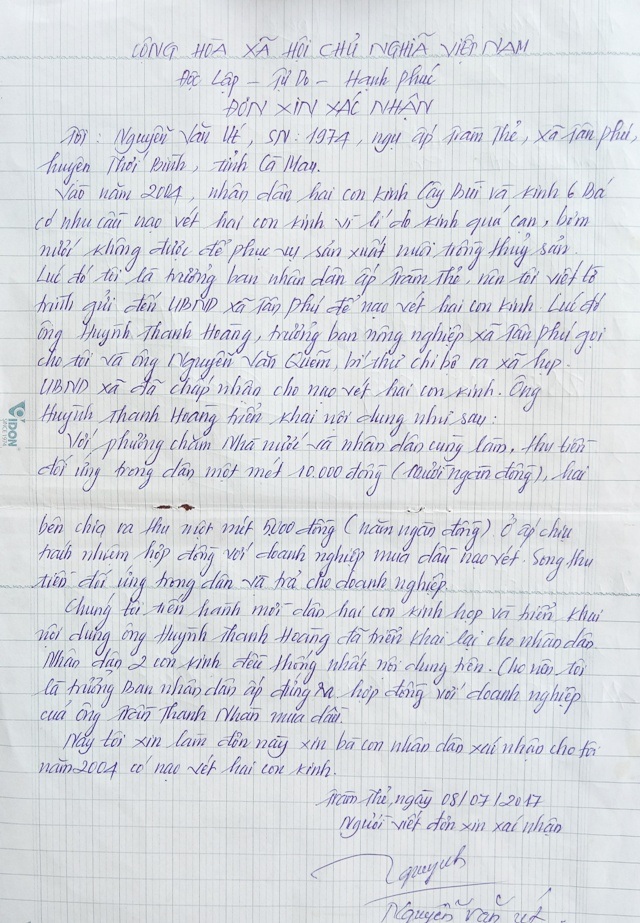 CỘNG HÒA XÃ HỘI CHỦ NGHĨA VIỆT NAM
Độc Lập - Tự Do - Hạnh Phúc
ĐƠN XIN XÁC NHẬN
Tôi : Nguyễn Văn Út, SN: 1974, ngụ ấp Tràm Thẻ, xã Tân Phú,
huyện Thới Bình, tỉnh Cà Mau.
Vào năm 2004, nhân dân hai con kinh Cây Bùi và kinh 6 Bá
có nhu cầu nạo vét hai con kinh vì lí do kinh quá cạn, bơm
nước không được để phục vụ sản xuất nuôi trồng thuỷ sản.
Lúc đó tôi là trưởng ban nhân dân ấp Tràm Thẻ, nên tôi viết tờ
trình gửi đến UBND xã Tân Phú để nạo vét hai con kinh. Lúc đó
ông Huỳnh Thanh Hoàng, trưởng ban nông nghiệp xã Tân Phú gọi
cho tôi và ông Nguyễn Văn, bí thư chi bộ ra xã họp.
UBND xã đã chấp nhân cho nạo vét hai con kinh. Ông
Huỳnh Thanh Hoàng triển khai nội dung như sau:
Với phương châm Nhà nước và nhân dân cùng làm, thu tiền
đối ứng trong dân một mét 10.000 đồng (Mười ngàn đồng), hai
VIDON
bên chia ra thu một mét 5.000 đồng (năm ngàn đồng). Ở ấp chịu
trách nhiệm hợp đồng với doanh nghiệp mua dầu nạo vét. Song thu
tiền đối ứng trong dân và trả cho doanh nghiệp.
Chúng tôi tiến hành mời dân hai con kinh họp và triển khai
nội dung ông Huỳnh Thanh Hoàng đã triển khai lại cho nhân dân
Nhân dân 2 con kinh đều thống nhất nội dung trên. Cho nên tôi
là trưởng Ban nhân dân ấp đứng ra hợp đồng với doanh nghiệp
của ông Trần Thanh Nhàn mua dầu.
Nay tôi xin làm đơn này xin bà con nhân dân xác nhận cho tôi
năm 2004 có nạo vét hai con kinh.
Tràm Thẻ, ngày 08/07/2017
Người viết đơn xin xác nhận
Nguyễn Văn Út